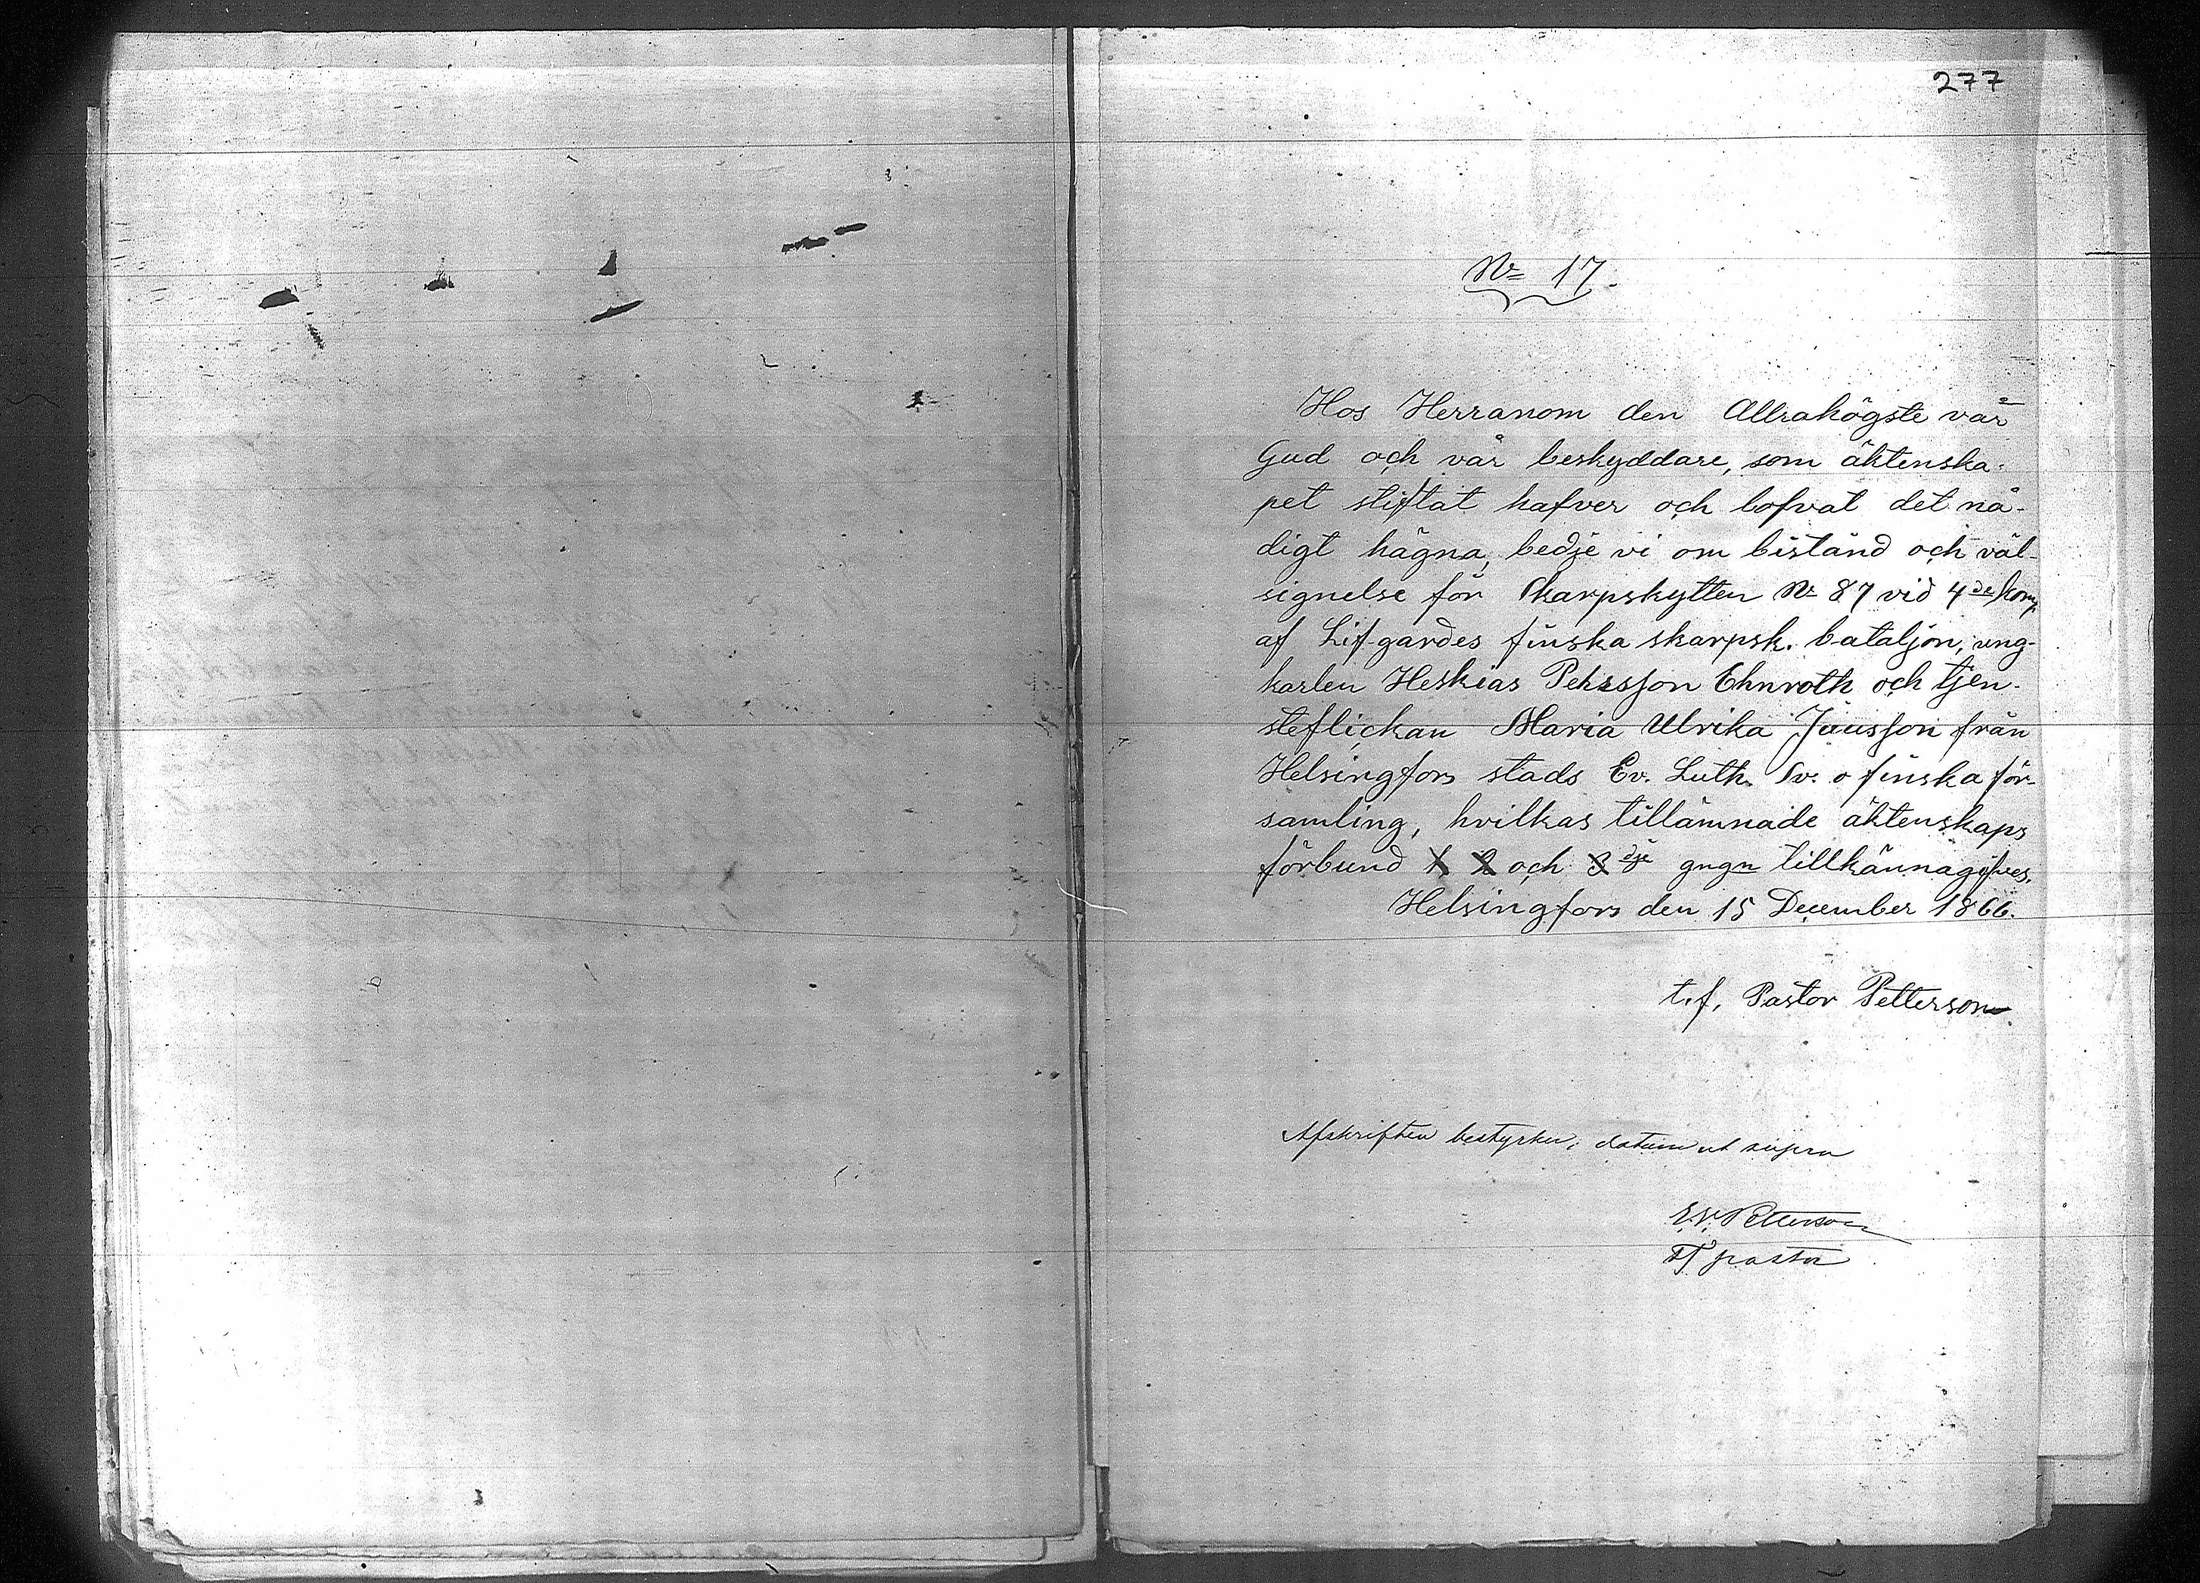 277
No 17.
Hos Herranom den Allrahögste vår
Gud och vår beskyddare, som äktenska-
pet stiftat hafver och lofvat det nå-
digt hägna, bedje vi om bistånd och väl-
signelse för Skarpskytten No 87 vid 4de Komp.
af Lif-gardes finska skarpsk. bataljon, ung-
karlen Heskias Pehrsson Ehnroth och tjen-
steflickan Maria Ulrika Jansson från
Helsingfors stads Ev. Luth. Sv. o finska för-
samling, hvilkas tillämnade äktenskaps
förbund 1 2 och 3dje gngn tillkännagifves.
Helsingfors den 15 December 1866.
t.f. Pastor Petterson
Afskriften bestyrker; datum ut supra
Petterson
Tf pastor